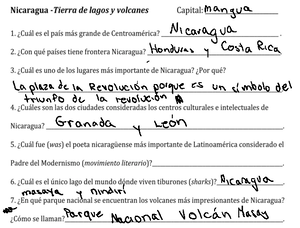 Nicaragua -Tierra de lagos y volcanes Capital: mangua
1. ¿Cuál es el país más grande de Centroamérica? Nicaragua.
2. ¿Con qué países tiene frontera Nicaragua? Honduras y Costa Rica
3. ¿Cuál es uno de los lugares más importante de Nicaragua? ¿Por qué?
La plaza de la Revolución porque es un símbolo del
triunfo de la revolución
4. ¿Cuáles son las dos ciudades consideradas los centros culturales e intelectuales de
Nicaragua? Granada y León
5. ¿Cuál fue (was) el poeta nicaragüense más importante de Latinoamérica considerado el
Padre del Modernismo (movimiento literario)?
6. ¿Cuál es el único lago del mundo dónde viven tiburones (sharks)? Nicaragua
masaya y nindirí
7. ¿En qué parque nacional se encuentran los volcanes más impresionantes de Nicaragua?
¿Cómo se llaman? Parque Nacional Volcán Masay